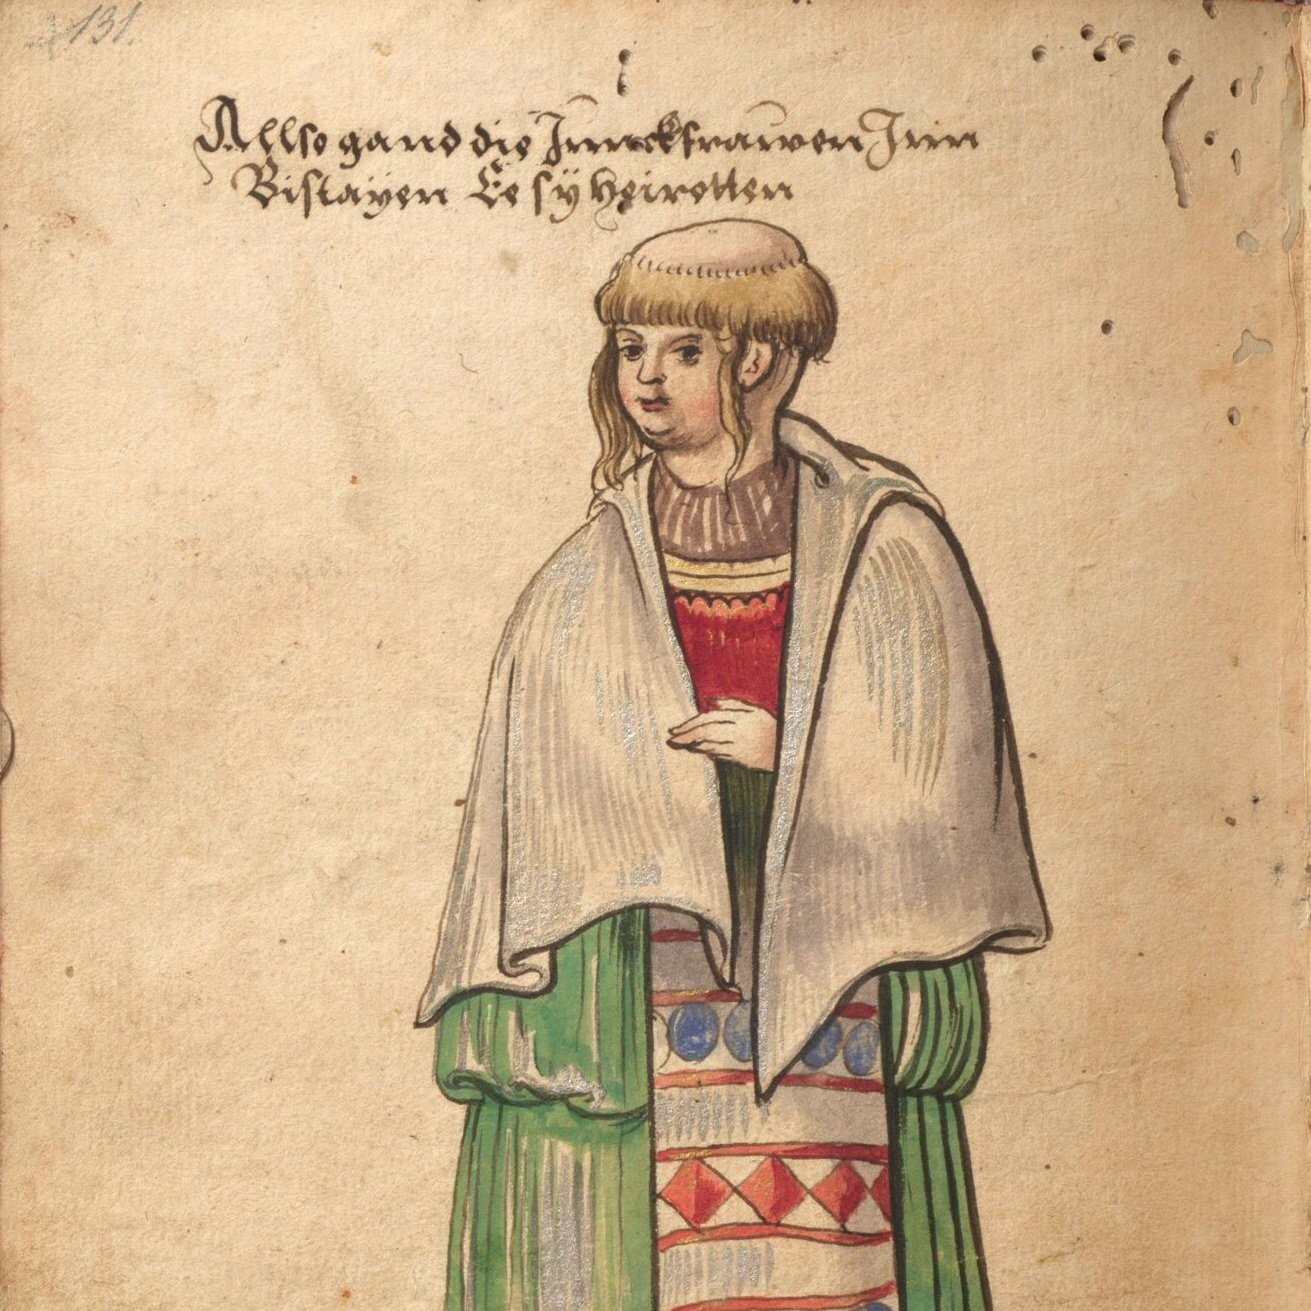 131.
Allso gand die Junckfrawen Jnn
Biscayen Ee sÿ heiretten